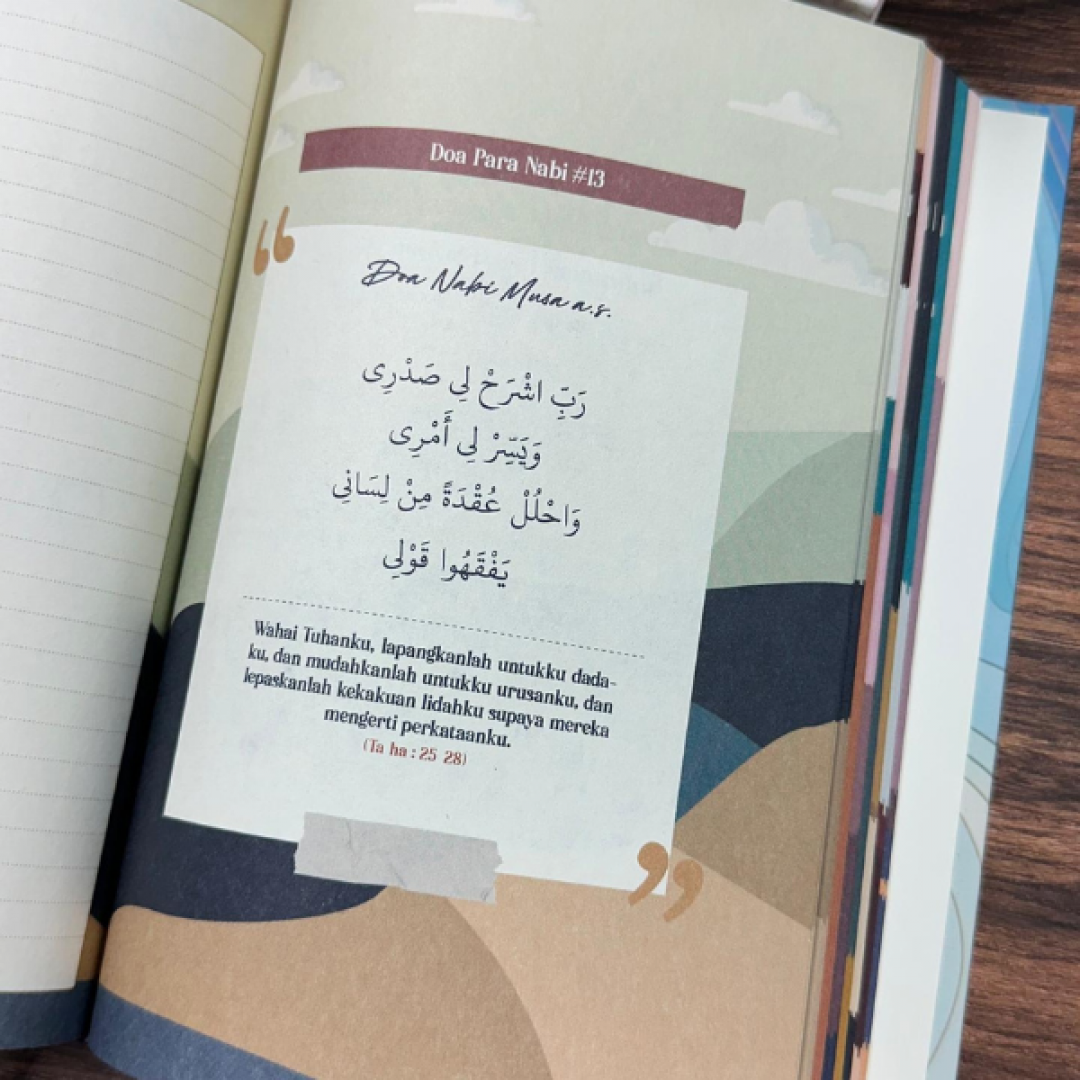 Doa Para Nabi #13
Doa Nabi Musa a.s.
رَبِّ اشْرَحْ لِى صَدْرِى
وَيَسِّرْ لِى أَمْرِى
وَاحْلُلْ عُقْدَةً مِنْ لِسَانِى
يَفْقَهُوا قَوْلِى
Wahai Tuhanku, lapangkanlah untukku dada-
ku, dan mudahkanlah untukku urusanku, dan
lepaskanlah kekakuan lidahku supaya mereka
mengerti perkataanku.
(Ta ha : 25 28)